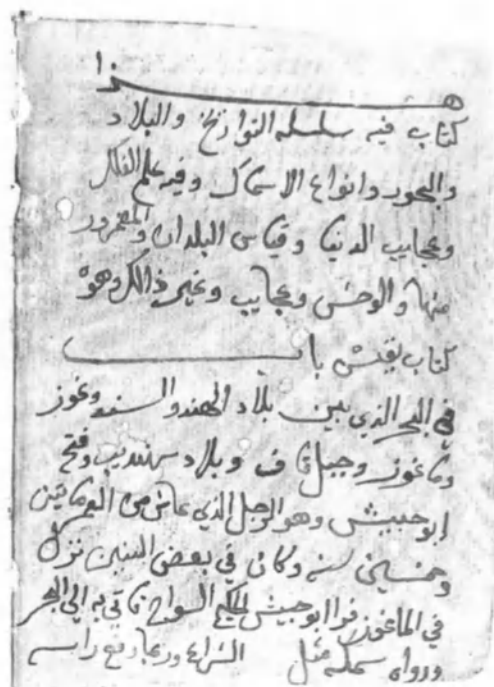 هذا
كتاب فيه سلسلة التواريخ والبلاد
والبحور وانواع الاسماك وفيه علم الفلك
وعجايب الدنيا وقياس البلدان والمعمور
منها والوحش وعجايب وغير ذالك وهو
كتاب نفيس باب
في البحر الذي بين بلاد الهند والسند وغوز
وماغوز وجبل قاف وبلاد سرنديب وفتح
ابو حبيش وهو الرجل الذي عاش من العمر مايتين
وخمسين سنه وكان في بعض السنين نزل
في الماغوز فرا ابو حبيش الحكيم السواح فاتي به الي البحر
ورواه سمكه مثل الشراع وربما رفع راسه